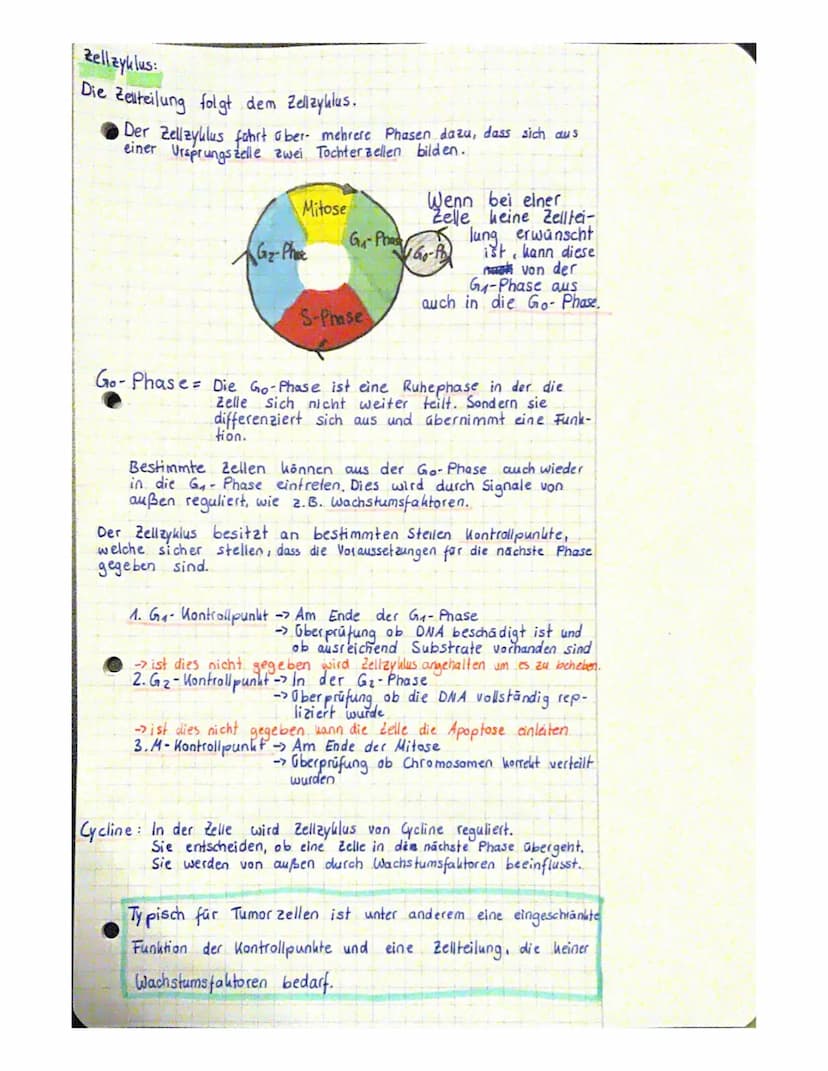 Zellzyklus:
Die Zellteilung folgt dem Zellzyklus.
Der Zellzyklus führt über mehrere Phasen dazu, dass sich aus
einer Ursprungszelle zwei Tochterzellen bilden.
Mitose
G1-Phase
G2-Phase
S-Phase
G0-Ph
Wenn bei einer
Zelle keine Zelltei-
lung erwünscht
ist, kann diese
von der
G1-Phase aus
auch in die G0-Phase.
G0-Phase = Die G0-Phase ist eine Ruhephase in der die
Zelle sich nicht weiter teilt. Sondern sie
differenziert sich aus und übernimmt eine Funk-
tion.
Bestimmte Zellen können aus der G0-Phase auch wieder
in die G1-Phase eintreten. Dies wird durch Signale von
außen reguliert, wie z.B. Wachstumsfaktoren.
Der Zellzyklus besitzt an bestimmten Stellen Kontrollpunkte,
welche sicher stellen, dass die Voraussetzungen für die nächste Phase
gegeben sind.
1. G1-Kontrollpunkt -> Am Ende der G1-Phase
-> Überprüfung ob DNA beschädigt ist und
ob ausreichend Substrate vorhanden sind
-> ist dies nicht gegeben wird Zellzyklus angehalten um es zu beheben.
2. G2-Kontrollpunkt -> In der G2-Phase
-> Überprüfung ob die DNA vollständig rep-
liziert wurde
-> ist dies nicht gegeben kann die Zelle die Apoptose einleiten
3. M-Kontrollpunkt -> Am Ende der Mitose
-> Überprüfung ob Chromosomen korrekt verteilt
wurden
Cycline: In der Zelle wird Zellzyklus von Cycline reguliert.
Sie entscheiden, ob eine Zelle in die nächste Phase übergeht.
Sie werden von außen durch Wachstumsfaktoren beeinflusst.
Typisch für Tumorzellen ist unter anderem eine eingeschränkte
Funktion der Kontrollpunkte und eine Zellteilung, die keiner
Wachstumsfaktoren bedarf.